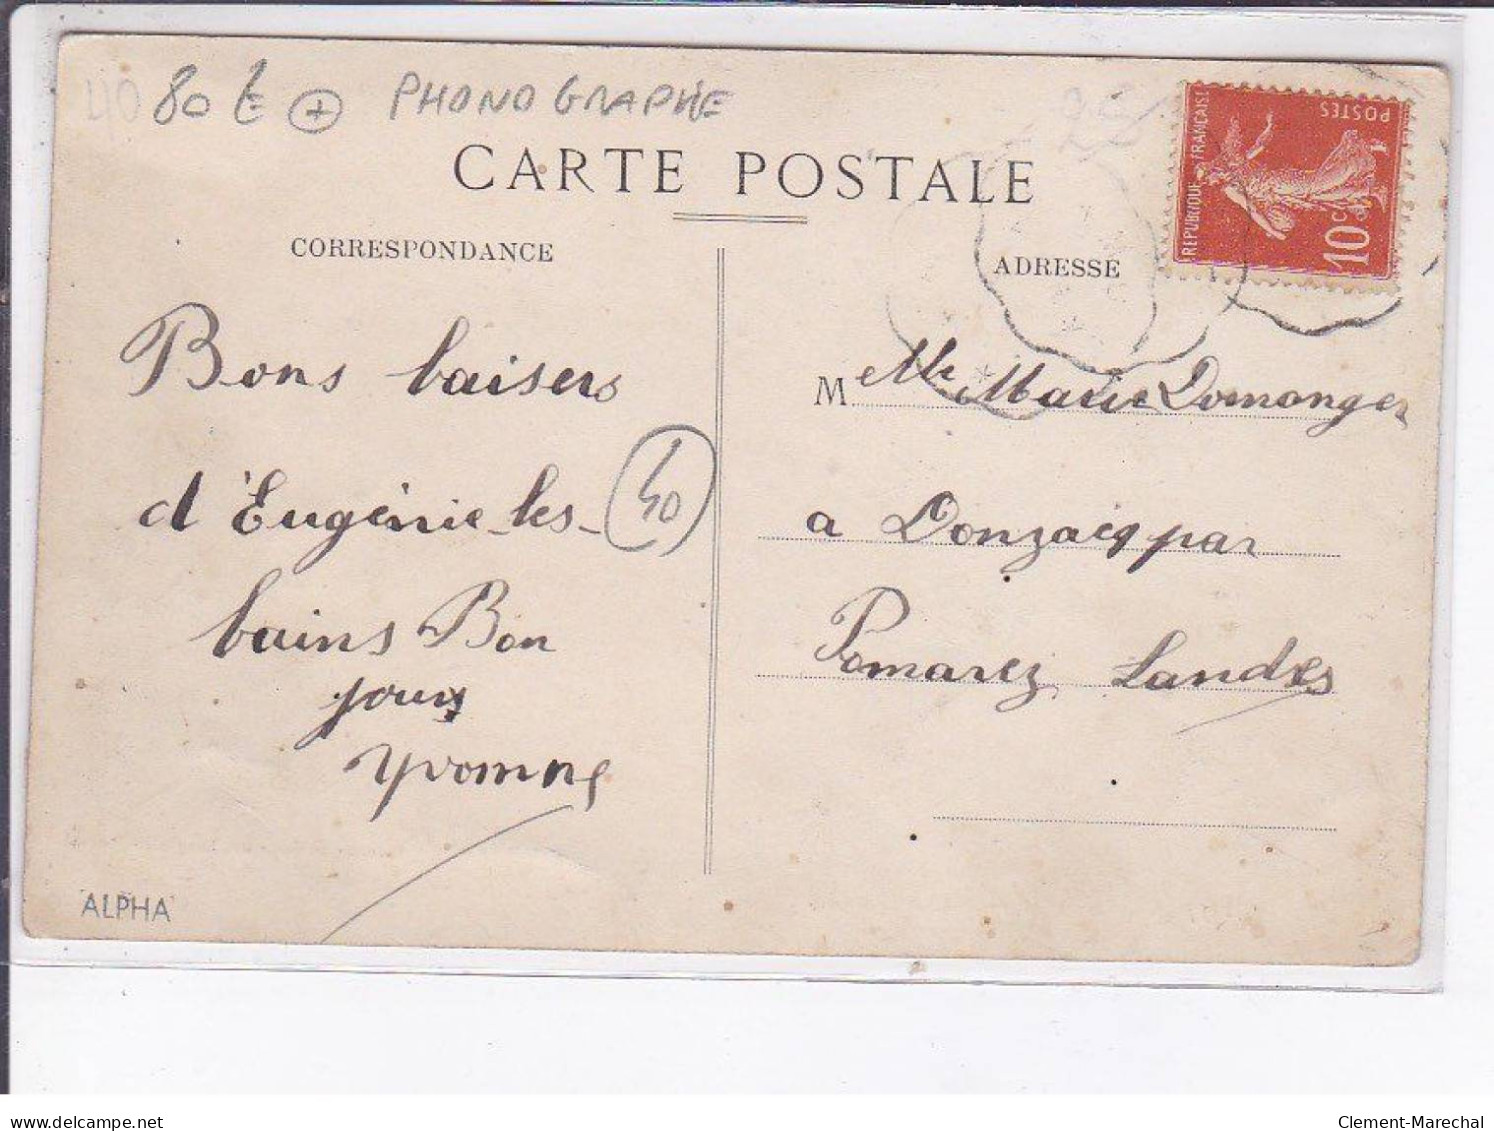 40 80 € + PHONOGRAPHE
CARTE POSTALE
CORRESPONDANCE
ADRESSE
REPUBLIQUE FRANÇAISE
POSTES
10 C
Bons baisers
d'Eugénie-les-
40
bains Bon
jour
Yvonne
ALPHA
M elle Marie Domenger
a Donzacq par
Pomarez Landes
delcampe.net
Clement-Marechal